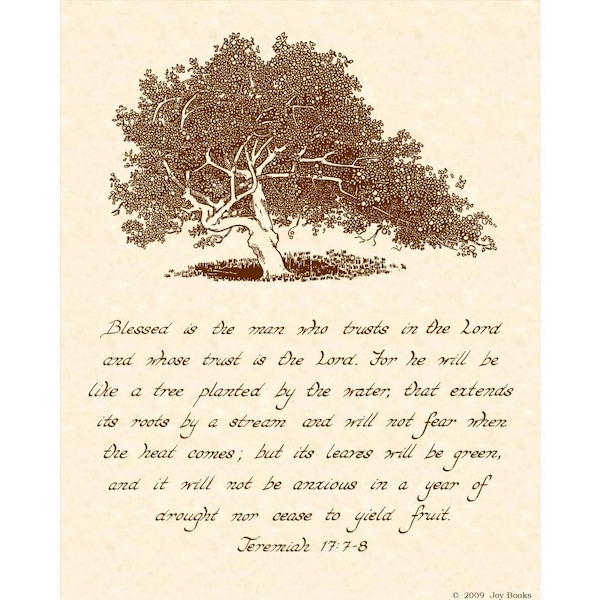 Blessed is the man who trusts in the Lord
and whose trust is the Lord. For he will be
like a tree planted by the water, that extends
its roots by a stream and will not fear when
the heat comes; but its leaves will be green,
and it will not be anxious in a year of
drought nor cease to yield fruit.
Jeremiah 17:7-8
© 2009 Joy Books